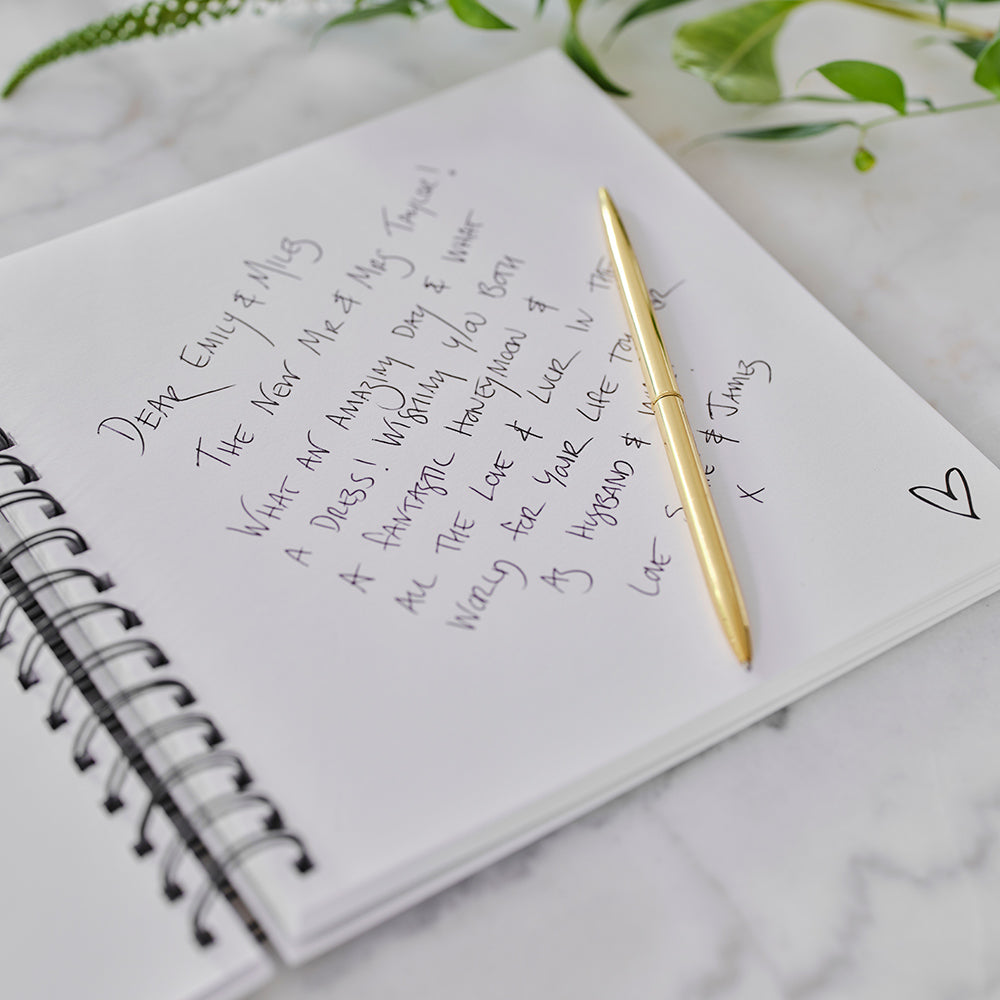 DEAR EMILY & MILES
THE NEW MR & MRS TAYLOR!
WHAT AN AMAZING DAY & WHAT
A DRESS! WISHING YOU BOTH
A FANTASTIC HONEYMOON &
ALL THE LOVE & LUCK IN
WORLD FOR YOUR LIFE
AS HUSBAND &
LOVE & JAMES
X